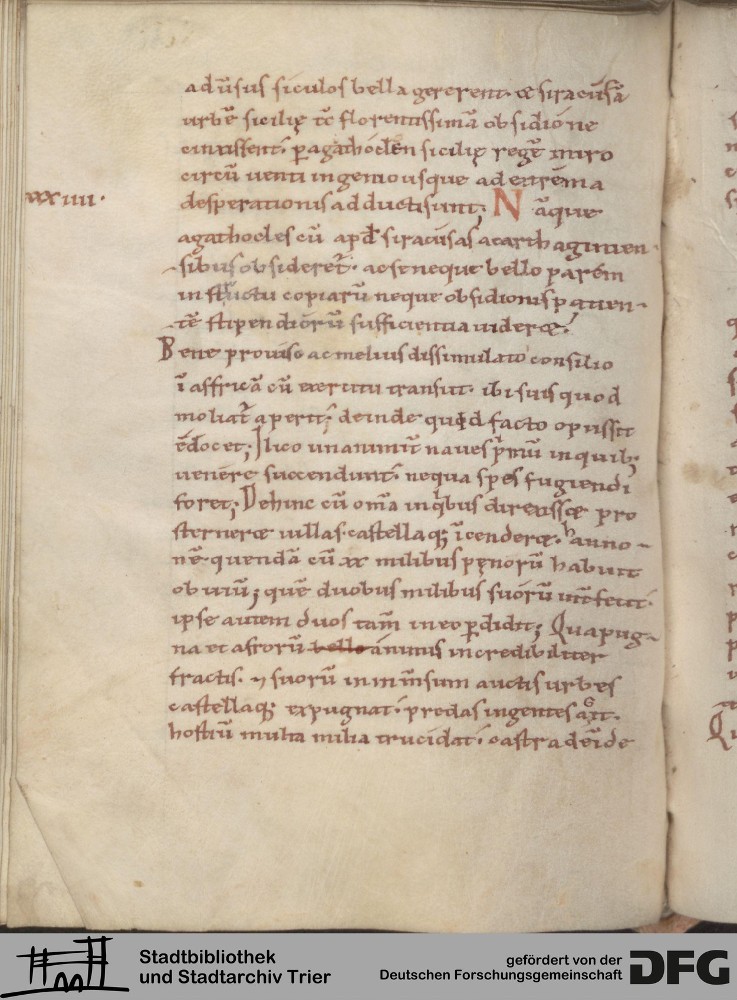 adūsus siculos bella gererent· & siracusā
urbē sicilię tc̄ florentissimā obsidione
cinxissent· p agathoclen sicilię regē miro
circū uenti ingenio usque ad extrema
xxiiii·
desperationis adducti sunt; Nāque
agathocles cū apd̄ siracusas a carthaginien-
-sibus obsideret̄· ac se neque bello parem
instructu copiarū neque obsidionis patien-
-tē stipendiorū sufficientia uider&·
Bene prouiso ac melius dissimulato consilio
ī affricā cū exercitu transiit· ibi suis quod
moliat̄ aperit; deinde quid facto opus sit
edocet; Ilico unanimit̄ naues prmū in quib;
uenere succendunt· nequa spes fugiendi
foret; Dehinc cū om̄a in qibus direxiss& pro
sterner& uillas· castellaq; īcender&· hanno-
nē quendā cū xx milibus pęnorū habuit
obuiū; quē duobus milibus suorū int̄fecit·
ipse autem duos tam̄ in eo pdidit; Qua pug-
na et afrorū bello animis incredibiliter
fractis· ⁊ suorū in inm̄sum auctis urbes
castellaq; expugnat· predas ingentes agit·
hostiū multa milia trucidat· castra deīde
Stadtbibliothek
und Stadtarchiv Trier
gefördert von der
Deutschen Forschungsgemeinschaft
DFG